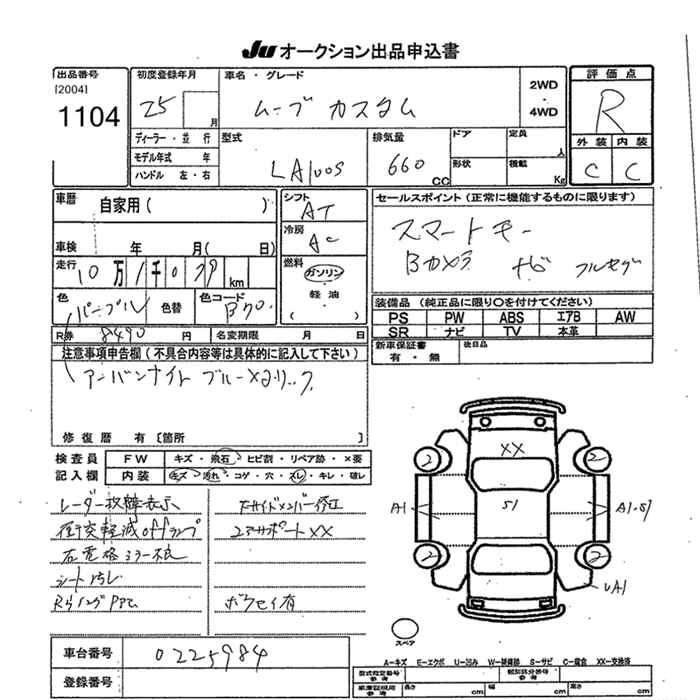 JU オークション出品申込書
出品番号
[2004]
1104
初度登録年月
25
月
車名・グレード
ムーブ カスタム
2WD
・
4WD
評価点
R
外装 内装
C C
ディーラー・並行
モデル年式 年
ハンドル 左・右
型式
LA100S
排気量
660
CC
ドア
形状
定員
人
積載
Kg
車歴
自家用( )
車検 年 月( 日)
走行
10万1千039 km
色
パープル
色替
色コード
B70.
シフト
AT
冷房
AC
燃料
ガソリン
軽油
( )
セールスポイント(正常に機能するものに限ります)
スマートキー
Bカメラ ナビ フルセグ
装備品(純正品に限り○を付けてください)
PS PW ABS エアB AW
SR ナビ TV 本革
新車保証書
有・無
後日品
R券 8490 円
名変期限 月 日
注意事項申告欄(不具合内容等は具体的に記入して下さい)
アーバンナイト ブルーメタリック
修復歴 有〔箇所
検査員
記入欄
FW キズ・飛石・ヒビ割・リペア跡・×要
内装 キズ・汚れ・コゲ・穴・スレ・キレ・破レ
レーダー故障表示
衝突軽減offランプ
右電格ミラー不良
シート汚レ
コアサポートXX
ボウセイ有
XX
2 2
A1 S1 A1・S1
2 2
UA1
スペア
A-キズ E-エクボ U-凹み W-装補跡 S-サビ C-腐食 XX-交換済
車台番号 0225984
登録番号
型式指定番号
参考
類別区分番号
参考
長さ cm 幅 cm 高さ cm